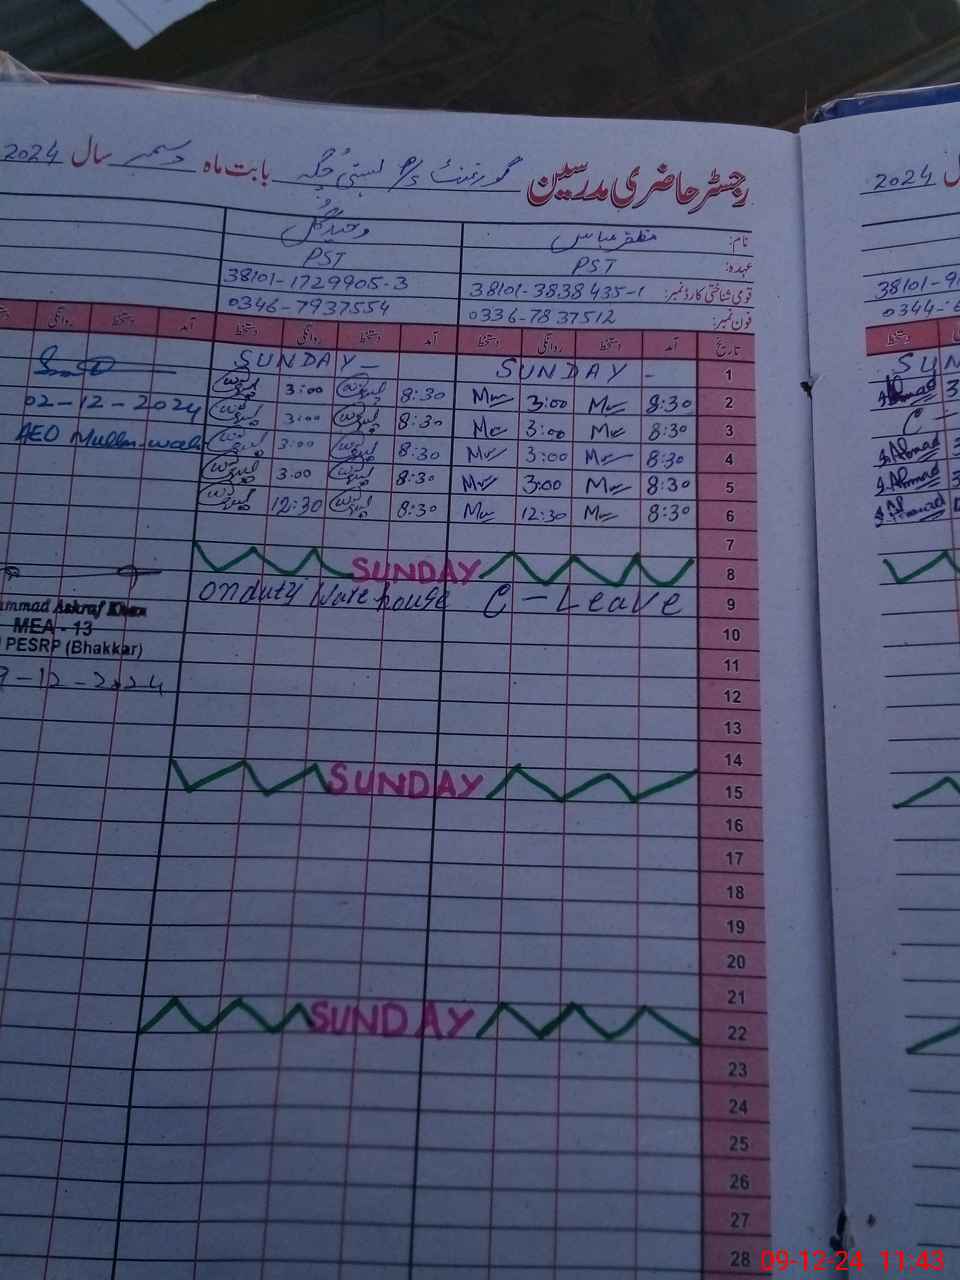 رجسٹر حاضری مدرسین گورنمنٹ P/S بستی جگہ بابت ماہ دسمبر سال 2024
2024
نام: مظفر عباس وحید گل
عہدہ: PST PST
قومی شناختی کارڈ نمبر: 38101-3838435-1 38101-1729905-3
فون نمبر: 0336-7837512 0346-7937554
38101-9
0344-6
تاریخ آمد دستخط روانگی دستخط آمد دستخط روانگی دستخط آمد دستخط روانگی
دستخط
1 SUNDAY - SUNDAY -
SUN
2 8:30 3:00 8:30 3:00
02-12-2024
3 8:30 3:00 8:30 3:00
C-
AEO
4 8:30 3:00 8:30 3:00
5 8:30 3:00 8:30 3:00
6 8:30 12:30 8:30 12:30
7
8 SUNDAY
9 C-Leave onduty Ware house
ammad Ashraf Khan
MEA - 13
PESRP (Bhakkar)
9-12-2024
10
11
12
13
14
15 SUNDAY
16
17
18
19
20
21
22 SUNDAY
23
24
25
26
27
28
09-12-24 11:43